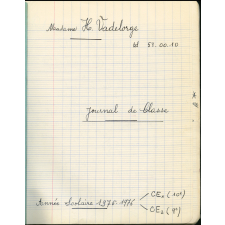 Madame H. Vadelorge
tel 51.00.10
Journal de Classe
CE1 (10e)
Année Scolaire 1975-1976
CE2 (9e)